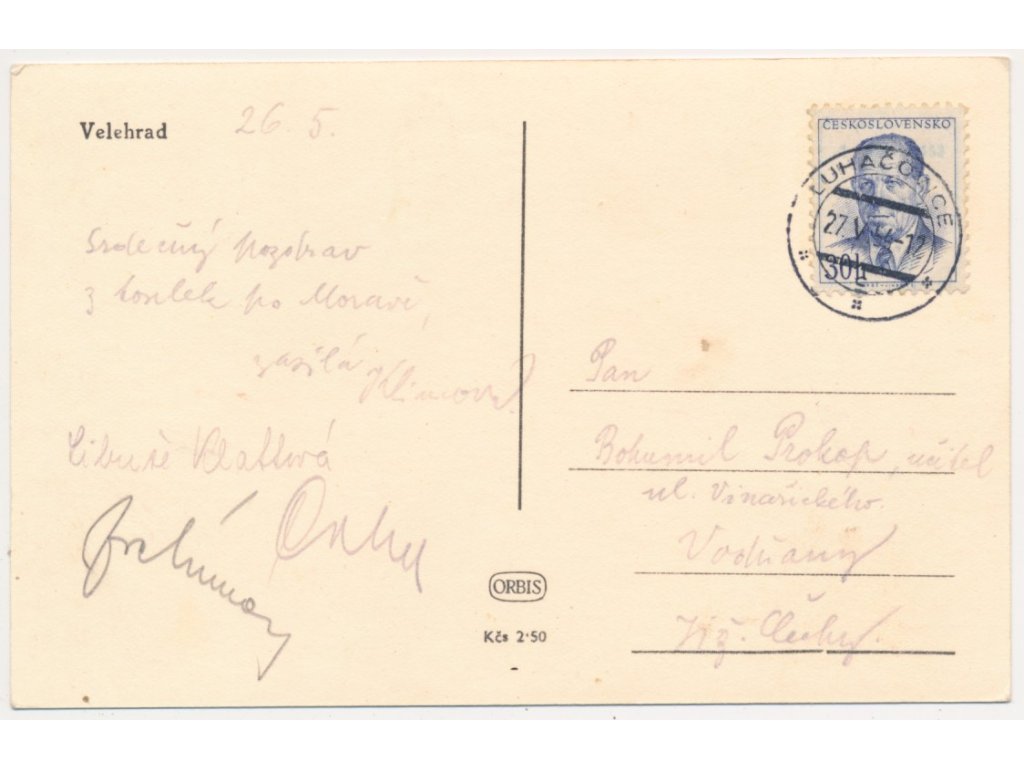 Velehrad
26. 5.
Srdečný pozdrav
z toulek po Moravě,
zasílá Klimová
Libuše Klattová
ČESKOSLOVENSKO
LUHAČOVICE
27.V.54-12
30h
Pan
Bohumil Prokop, učitel
ul. Vinařického
Vodňany
Již. Čechy
ORBIS
Kčs 2·50